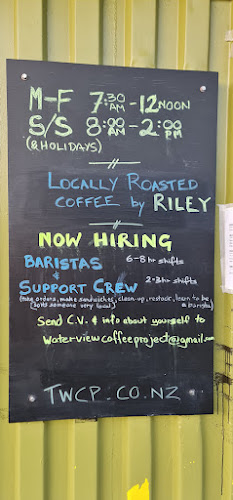 M-F 7:30 AM - 12 NOON
S/S 8:00 AM - 2:00 PM
(& HOLIDAYS)
LOCALLY ROASTED
COFFEE by RILEY
NOW HIRING
BARISTAS 6-8 hr shifts
&
SUPPORT CREW 2-3 hr shifts
(take orders, make sandwiches, clean-up, restock, learn to be a barista)
(look someone very local)
Send C.V. & info about yourself to
waterviewcoffeeproject@gmail.com
TWCP.CO.NZ